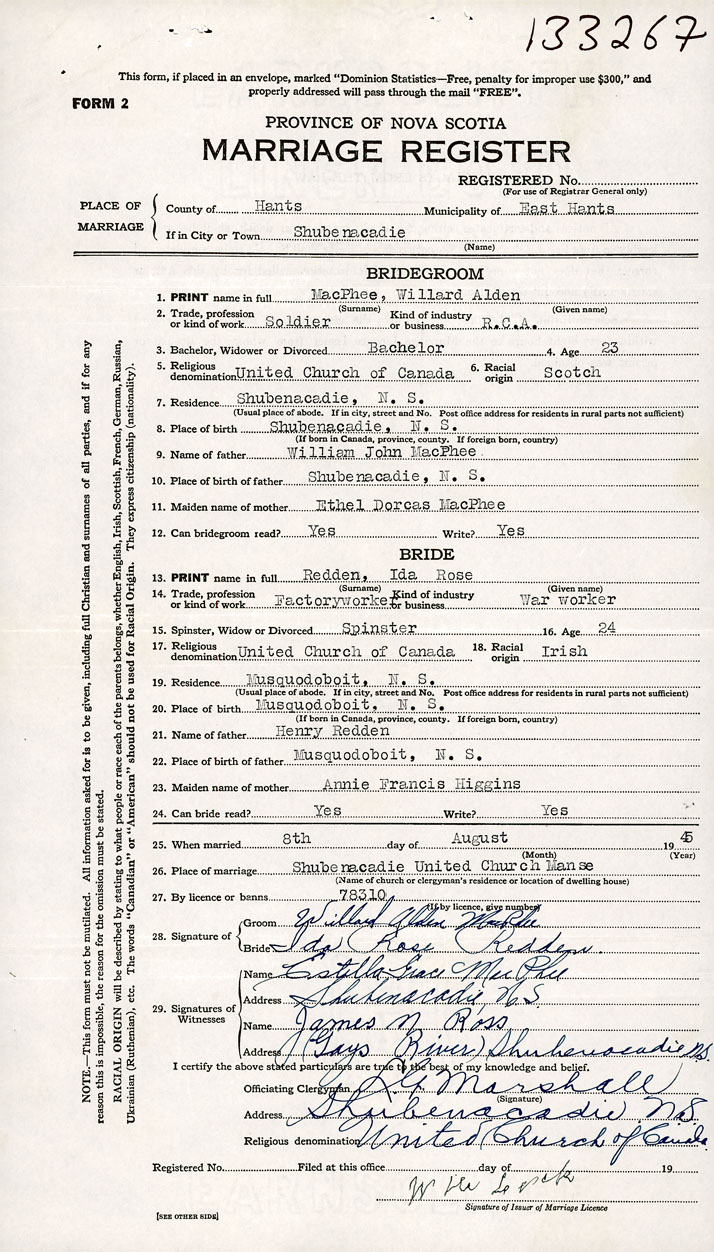 133267
This form, if placed in an envelope, marked “Dominion Statistics—Free, penalty for improper use $300,” and
properly addressed will pass through the mail “FREE”.
FORM 2
PROVINCE OF NOVA SCOTIA
MARRIAGE REGISTER
REGISTERED No.
(For use of Registrar General only)
PLACE OF MARRIAGE
County of Hants Municipality of East Hants
If in City or Town Shubenacadie
(Name)
BRIDEGROOM
1. PRINT name in full MacPhee, Willard Alden
(Surname) (Given name)
2. Trade, profession or kind of work Soldier Kind of industry or business R.C.A.
3. Bachelor, Widower or Divorced Bachelor 4. Age 23
5. Religious denomination United Church of Canada 6. Racial origin Scotch
7. Residence Shubenacadie, N. S.
(Usual place of abode. If in city, street and No. Post office address for residents in rural parts not sufficient)
8. Place of birth Shubenacadie, N. S.
(If born in Canada, province, county. If foreign born, country)
9. Name of father William John MacPhee
10. Place of birth of father Shubenacadie, N. S.
11. Maiden name of mother Ethel Dorcas MacPhee
12. Can bridegroom read? Yes Write? Yes
BRIDE
13. PRINT name in full Redden, Ida Rose
(Surname) (Given name)
14. Trade, profession or kind of work Factoryworker Kind of industry or business War worker
15. Spinster, Widow or Divorced Spinster 16. Age 24
17. Religious denomination United Church of Canada 18. Racial origin Irish
19. Residence Musquodoboit, N. S.
(Usual place of abode. If in city, street and No. Post office address for residents in rural parts not sufficient)
20. Place of birth Musquodoboit, N. S.
(If born in Canada, province, county. If foreign born, country)
21. Name of father Henry Redden
22. Place of birth of father Musquodoboit, N. S.
23. Maiden name of mother Annie Francis Higgins
24. Can bride read? Yes Write? Yes
25. When married 8th day of August 1945
(Month) (Year)
26. Place of marriage Shubenacadie United Church Manse
(Name of church or clergyman's residence or location of dwelling house)
27. By licence or banns 78310
(If by licence, give number)
28. Signature of
Groom Willard Alden MacPhee
Bride Ida Rose Redden
29. Signatures of Witnesses
Name Estella Grace MacPhee
Address Shubenacadie, N.S
Name James N Ross
Address (Gays River) Shubenacadie N.S.
I certify the above stated particulars are true to the best of my knowledge and belief.
Officiating Clergyman Marshall
(Signature)
Address Shubenacadie, N.S.
Religious denomination United Church of Canada
Registered No. Filed at this office day of 19
Signature of Issuer of Marriage Licence
[SEE OTHER SIDE]
NOTE.—This form must not be mutilated. All information asked for is to be given, including full Christian and surnames of all parties, and if for any
reason this is impossible, the reason for the omission must be stated.
RACIAL ORIGIN will be described by stating to what people or race each of the parents belongs, whether English, Irish, Scottish, French, German, Russian,
Ukrainian (Ruthenian), etc. The words “Canadian” or “American” should not be used for Racial Origin. They express citizenship (nationality).